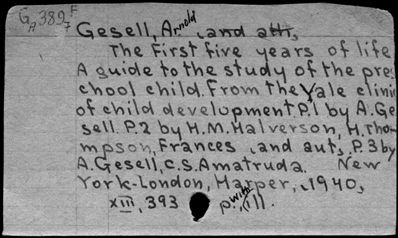 GA389F7
Gesell, Arnold and auth,
The first five years of life
A guide to the study of the pres
chool child. From the Yale clinic
of child development. P.1 by A. Ge
sell. P.2 by H.M. Halverson, H. Tho
mpson, Frances and aut, P.3 by
A. Gesell, C.S. Amatruda. New
York-London, Harper, 1940,
XIII, 393 p. with ill.